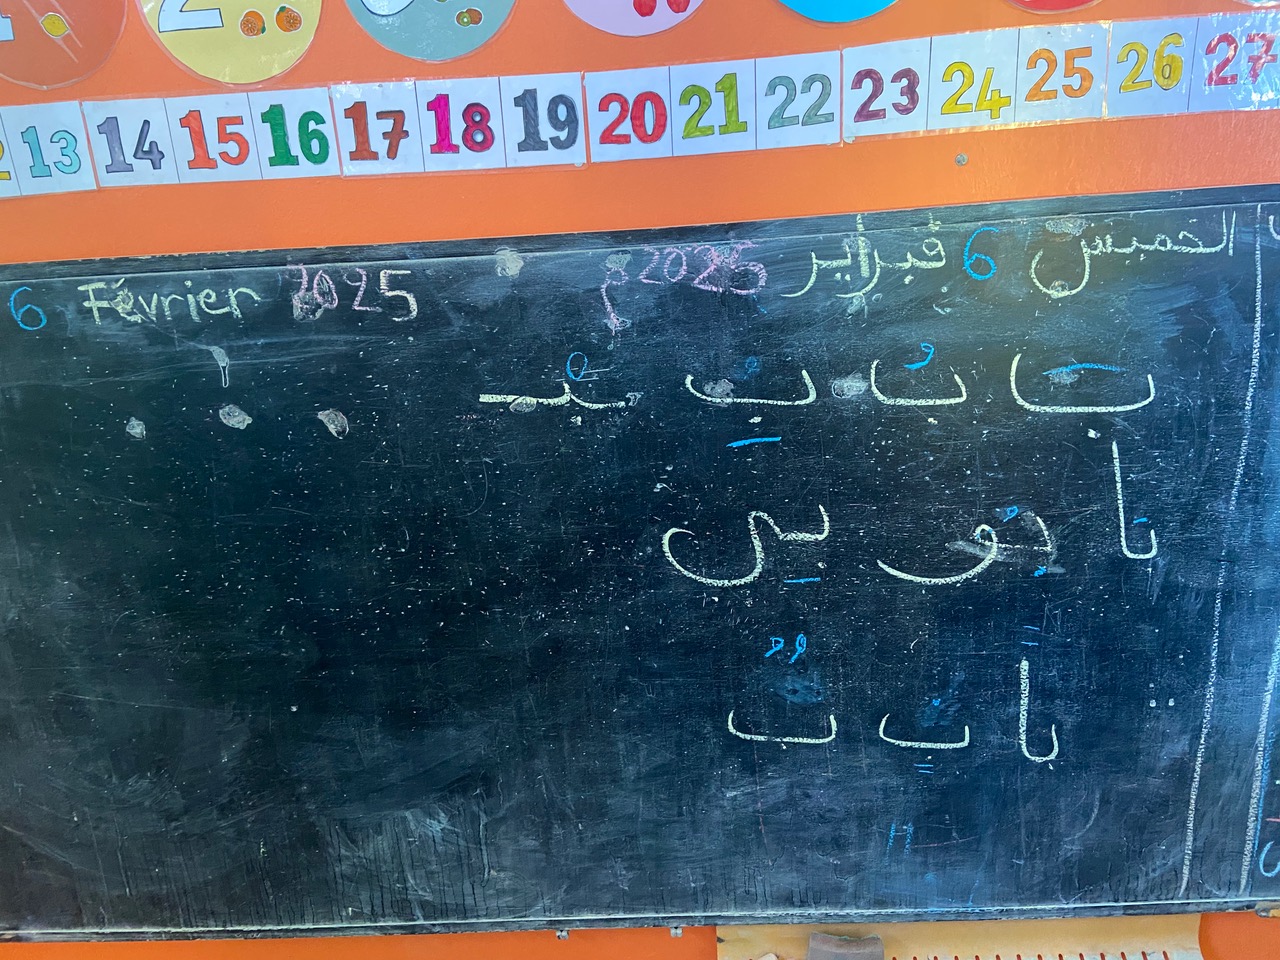 13 14 15 16 17 18 19 20 21 22 23 24 25 26 27
الخميس 6 فبراير 2025م
6 Février 2025
بَ بُ بِ بْـ
بَا بُو بِي
بًا بٍ بٌ